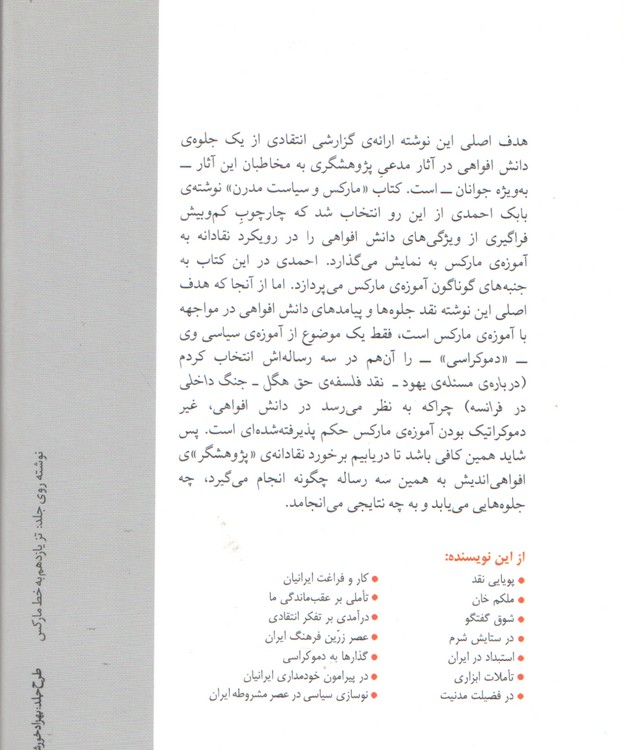 هدف اصلی این نوشته ارائه‌ی گزارشی انتقادی از یک جلوه‌ی
دانش افواهی در آثار مدعیِ پژوهشگری به مخاطبان این آثار ــ
به‌ویژه جوانان ــ است. کتاب «مارکس و سیاست مدرن» نوشته‌ی
بابک احمدی از این رو انتخاب شد که چارچوبِ کم‌وبیش
فراگیری از ویژگی‌های دانش افواهی را در رویکرد نقادانه به
آموزه‌ی مارکس به نمایش می‌گذارد. احمدی در این کتاب به
جنبه‌های گوناگون آموزه‌ی مارکس می‌پردازد. اما از آنجا که هدف
اصلی این نوشته نقد جلوه‌ها و پیامدهای دانش افواهی در مواجهه
با آموزه‌ی مارکس است، فقط یک موضوع از آموزه‌ی سیاسی وی
ــ «دموکراسی» ــ را آن‌هم در سه رساله‌اش انتخاب کردم
(درباره‌ی مسئله‌ی یهود ـ نقد فلسفه‌ی حق هگل ـ جنگ داخلی
در فرانسه) چراکه به نظر می‌رسد در دانش افواهی، غیر
دموکراتیک بودن آموزه‌ی مارکس حکم پذیرفته‌شده‌ای است. پس
شاید همین کافی باشد تا دریابیم برخورد نقادانه‌ی «پژوهشگر»ی
افواهی‌اندیش به همین سه رساله چگونه انجام می‌گیرد، چه
جلوه‌هایی می‌یابد و به چه نتایجی می‌انجامد.
از این نویسنده:
● پویایی نقد
● ملکم خان
● شوق گفتگو
● در ستایش شرم
● استبداد در ایران
● تأملات ابزاری
● در فضیلت مدنیت
● کار و فراغت ایرانیان
● تأملی بر عقب‌ماندگی ما
● درآمدی بر تفکر انتقادی
● عصر زرّین فرهنگ ایران
● گذارها به دموکراسی
● در پیرامون خودمداری ایرانیان
● نوسازی سیاسی در عصر مشروطه ایران
نوشته روی جلد: تز یازدهم به خط مارکس
طرح جلد: بهزاد